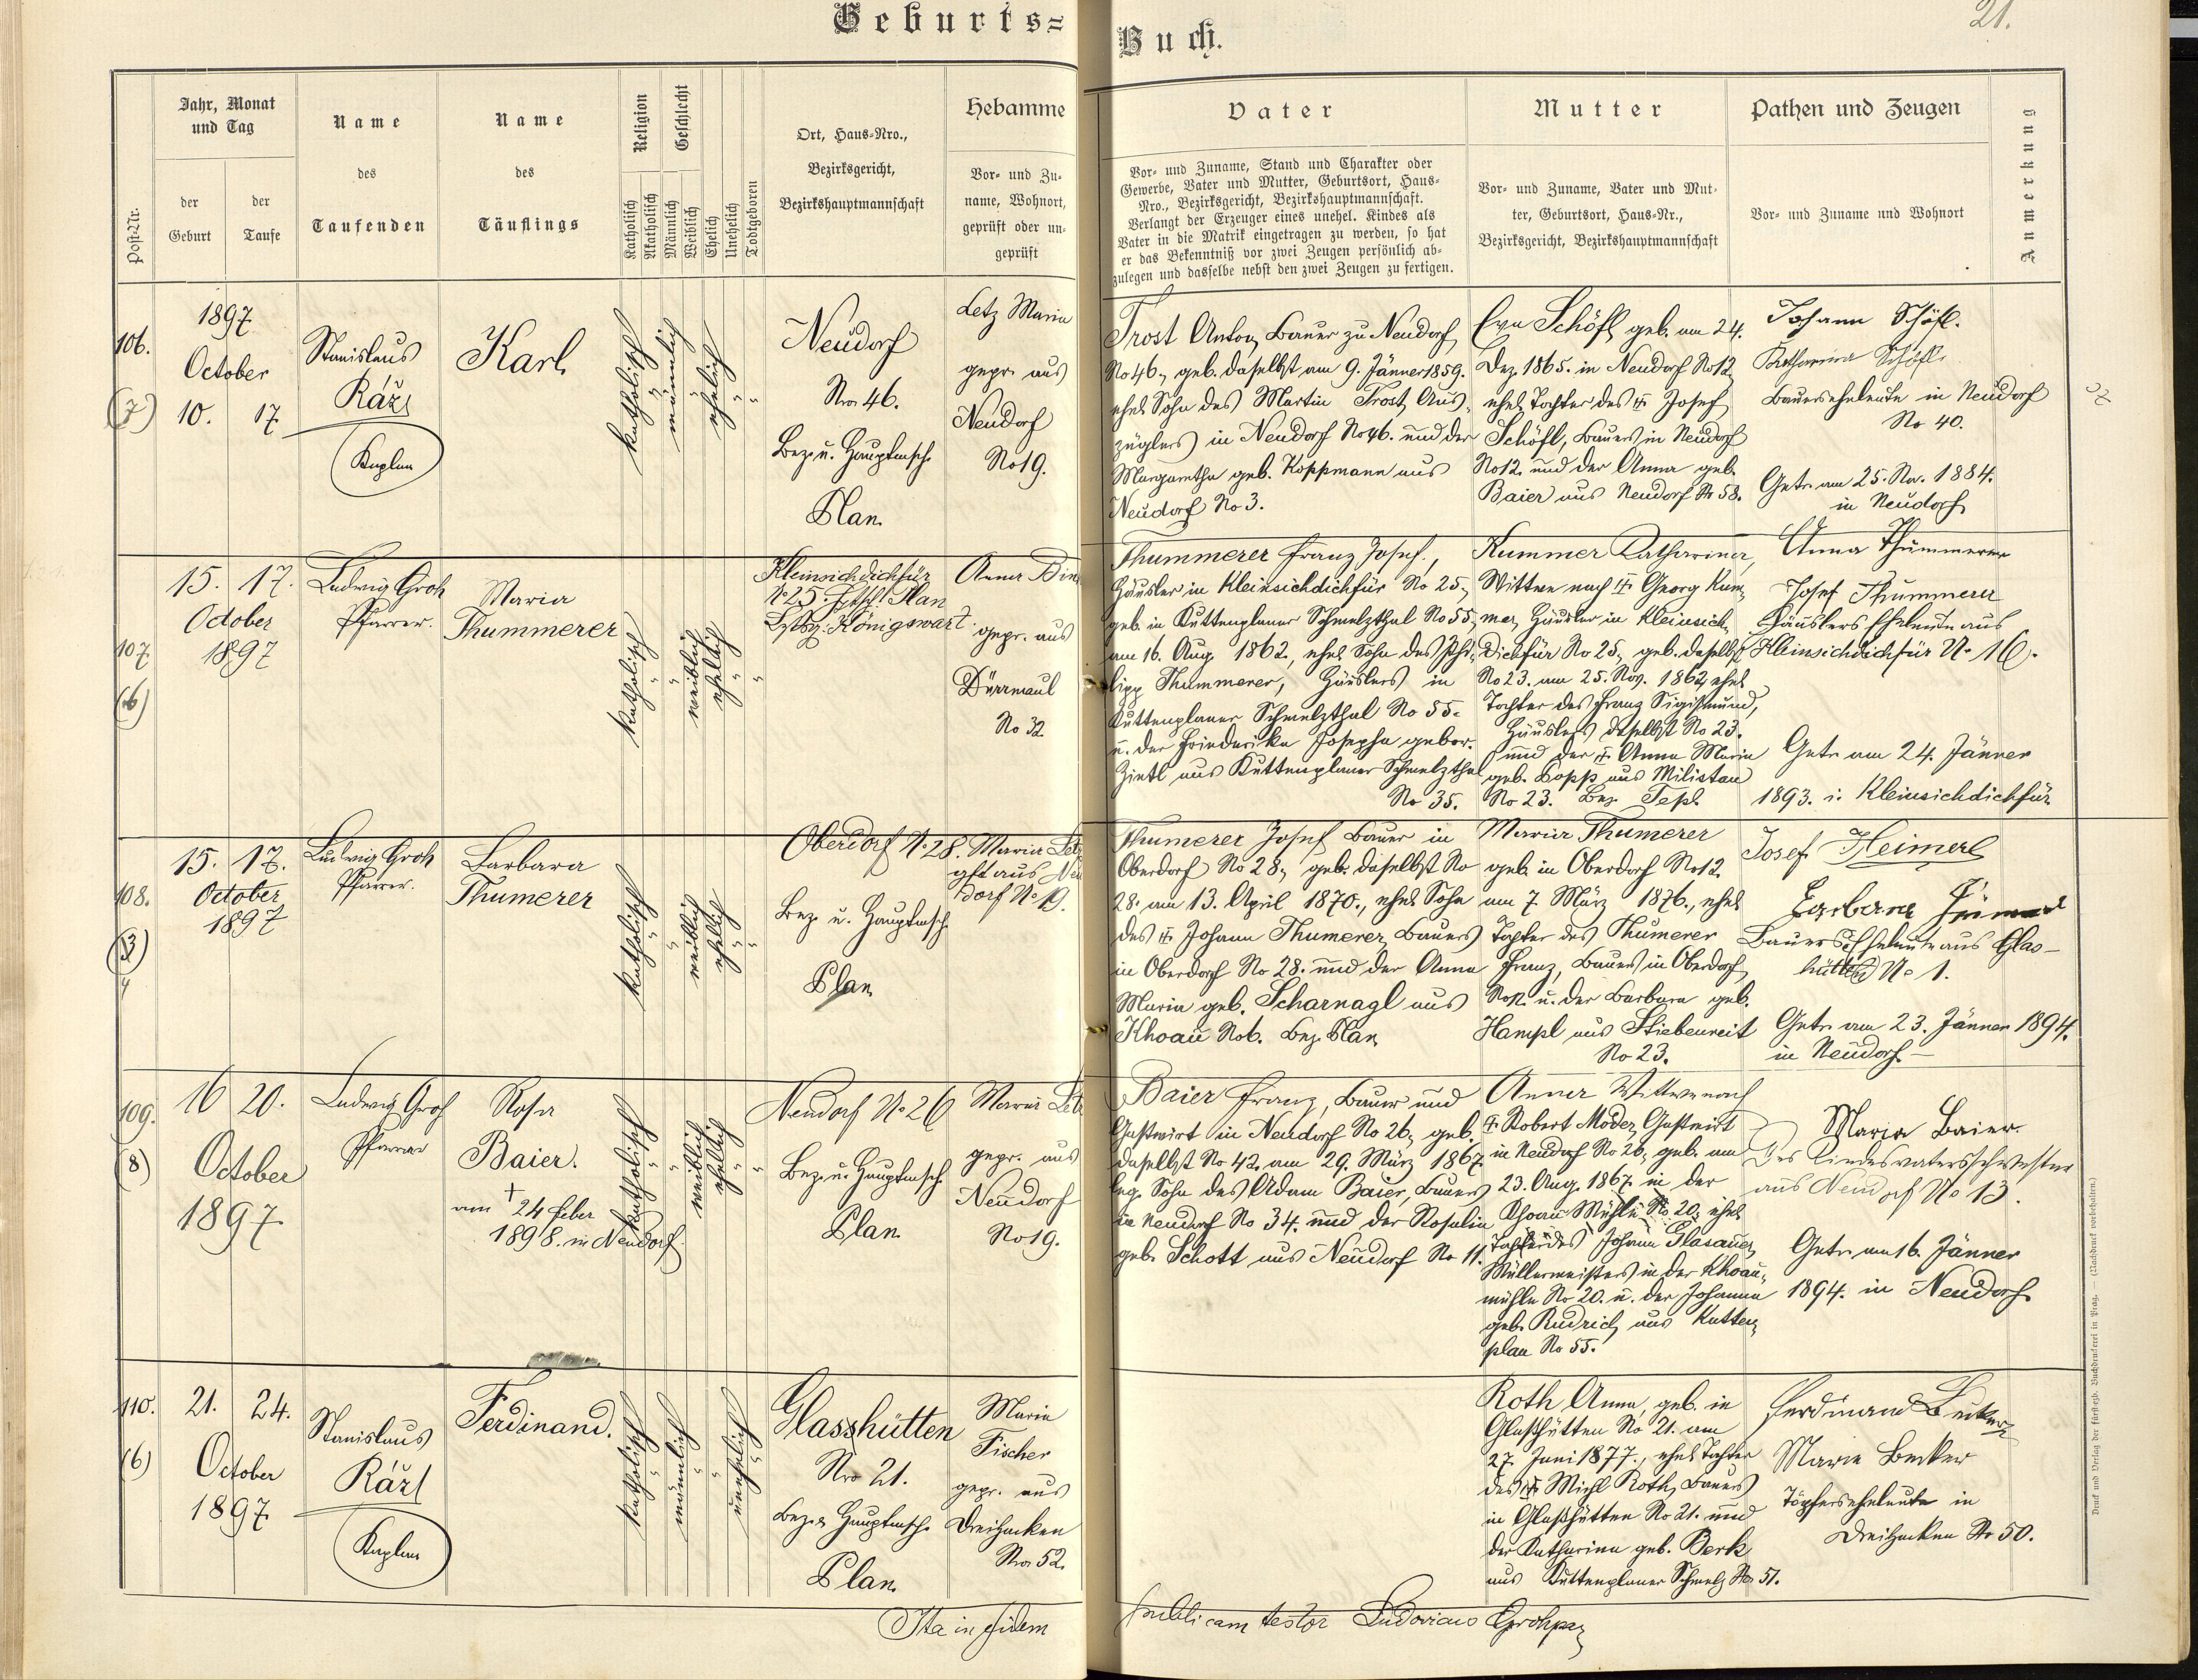 Geburts=
Buch.
21.
Post-Nr.
Jahr, Monat
und Tag
der
Geburt
der
Taufe
Name
des
Taufenden
Name
des
Täuflings
Religion
Katholisch
Akatholisch
Geschlecht
Männlich
Weiblich
Ehelich
Unehelich
Todtgeboren
Ort, Haus-Nro.,
Bezirksgericht,
Bezirkshauptmannschaft
Hebamme
Vor- und Zu-
name, Wohnort,
geprüft oder un-
geprüft
Vater
Vor- und Zuname, Stand und Charakter oder
Gewerbe, Vater und Mutter, Geburtsort, Haus-
Nro., Bezirksgericht, Bezirkshauptmannschaft.
Verlangt der Erzeuger eines unehel. Kindes als
Vater in die Matrik eingetragen zu werden, so hat
er das Bekenntniß vor zwei Zeugen persönlich ab-
zulegen und dasselbe nebst den zwei Zeugen zu fertigen.
Mutter
Vor- und Zuname, Vater und Mut-
ter, Geburtsort, Haus-Nr.,
Bezirksgericht, Bezirkshauptmannschaft
Pathen und Zeugen
Vor- und Zuname und Wohnort
Anmerkung
106.
(7)
1897
October
10. 17.
Stanislaus
Ráž
Kaplan
Karl
katholisch
"
männlich
"
ehelich
"
"
Neudorf
Nro 46.
Bez. u. Hauptmsch.
Plan
Letz Maria
gepr. aus
Neudorf
No 19.
Trost Anton, Bauer zu Neudorf
No 46, geb. daselbst am 9. Jänner 1859.
ehel. Sohn des Martin Trost, Aus-
züglers in Neudorf No 46. und der
Margaretha geb. Koppmann aus
Neudorf No 3.
Eva Schöfl, geb. am 24.
Dez. 1865. in Neudorf No 12
ehel. Tochter des † Josef
Schöfl, Bauers in Neudorf
No 12. und der Anna geb.
Baier aus Neudorf No 58.
Johann Schöfl.
Katharina Schöfl.
Bauerseheleute in Neudorf
No 40.
Getr. am 25. Nov. 1884.
in Neudorf
107.
(6)
15. 17.
October
1897
Ludwig Groh
Pfarrer.
Maria
Thummerer
katholisch
"
"
weiblich
ehelich
"
"
Kleinsichdichfür
No 25. Plan
Königswart
Anna
gepr. aus
Dürrmaul
No 32
Thummerer Franz Josef,
Häusler in Kleinsichdichfür No 25,
geb. in Kuttenplaner Schmelzthal No 55,
am 16. Aug. 1862, ehel. Sohn des Phi-
lipp Thummerer, Häuslers in
Kuttenplaner Schmelzthal No 55.
u. der Friederika Josepha gebor.
Zintl aus Kuttenplaner Schmelzthal
No 35.
Kummer Katharina,
Wittwe nach † Georg Kum-
mer, Häusler in Kleinsich-
dichfür No 25, geb. daselbst
No 23. am 25. Nov. 1862, ehel.
Tochter des Franz Sigismund,
Häuslers daselbst No 23.
und der † Anna Maria
geb. Kopp aus Milistau
No 23. Bez. Tepl.
Anna Thummerer
Josef Thummerer
Häuslers Eheleute aus
Kleinsichdichfür No 16.
Getr. am 24. Jänner
1893. i. Kleinsichdichfür
108.
15. 17.
October
1897
Ludwig Groh
Pfarrer.
Barbara
Thumerer
katholisch
"
"
weiblich
ehelich
"
"
Oberdorf No 28.
Bez. u. Hauptmsch
Plan
Maria Letz
gft aus Neu
dorf No 19.
Thumerer Josef Bauer in
Oberdorf No 28, geb. daselbst No
28. am 13. April 1870., ehel. Sohn
des † Johann Thumerer, Bauers
in Oberdorf No 28. und der Anna
Maria geb. Scharnagl aus
Khoau No 6. Bez. Plan
Maria Thumerer
geb. in Oberdorf No 12.
am 7. März 1876., ehel.
Tochter des Thumerer
Franz, Bauers in Oberdorf
No 12. u. der Barbara geb.
Hampl aus Stiebenreit
No 23.
Josef Heimerl
Barbara
Bauers Eheleute aus Glas-
hütten No 1.
Getr. am 23. Jänner 1894.
in Neudorf.
109.
(8)
16 20.
October
1897
Ludwig Groh
Pfarrer
Rosa
Baier.
† am 24 feber
1898. in Neudorf
katholisch
"
"
weiblich
ehelich
"
"
Neudorf No 26
Bez. u. Hauptmsch
Plan
Maria Letz
gepr. aus
Neudorf
No 19.
Baier Franz, Bauer und
Gastwirt in Neudorf No 26, geb.
daselbst No 42. am 29. März 1867
leg. Sohn des Adam Baier, Bauers
in Neudorf No 34. und der Rosalia
geb. Schott aus Neudorf No 11.
Anna Wittwe nach
† Robert Moder, Gastwirt
in Neudorf No 26, geb. am
23. Aug. 1867. in der
Khoau Mühle No 20, ehel.
Tochter des Johann Glasauer,
Müllermeisters in der Khoau-
mühle No 20. u. der Johanna
geb. Rudrich aus Kutten-
plan No 55.
Maria Baier.
Des Kindesvatersschwester
aus Neudorf No 13.
Getr. am 16. Jänner
1894. in Neudorf.
110.
(6)
21. 24.
October
1897
Stanislaus
Ráž
Kaplan
Ferdinand.
katholisch
"
männlich
"
"
unehelich
"
Glasshütten
Nro 21.
Bez. u. Hauptmsch.
Plan
Maria
Fischer
gepr. aus
Dreihacken
Nro 52.
Roth Anna, geb. in
Glashütten No 21. am
27. Juni 1877., ehel. Tochter
des † Michl Roth, Bauers
in Glashütten No 21. und
der Katharina geb. Berk
aus Kuttenplaner Schmelz No 51.
Ferdinand Becker
Marie Becker
Töpferseheleute in
Dreihacken No 50.
Ita in fidem
publicam testor Ludovicus Groh
Druck und Verlag der fürst-erzb. Buchdruckerei in Prag. — (Nachdruck vorbehalten.)